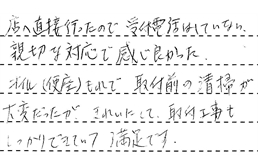 店へ直接行ったので 受付電話はしていない。
親切な対応で感じ良かった。
オイル（便座）もれで 取付前の清掃が
大変だったが きれいにして、取付工事も
しっかりできていて 満足です。